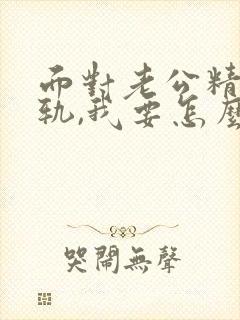 而對老公精
軌,我要怎麼
哭鬧無聲